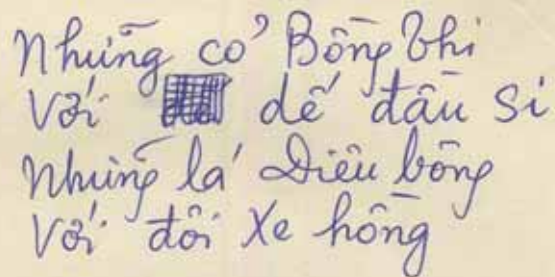 Những cỏ Bồng bhi
Với dế đầu si
Những lá Diêu bông
Với đôi Xe hồng